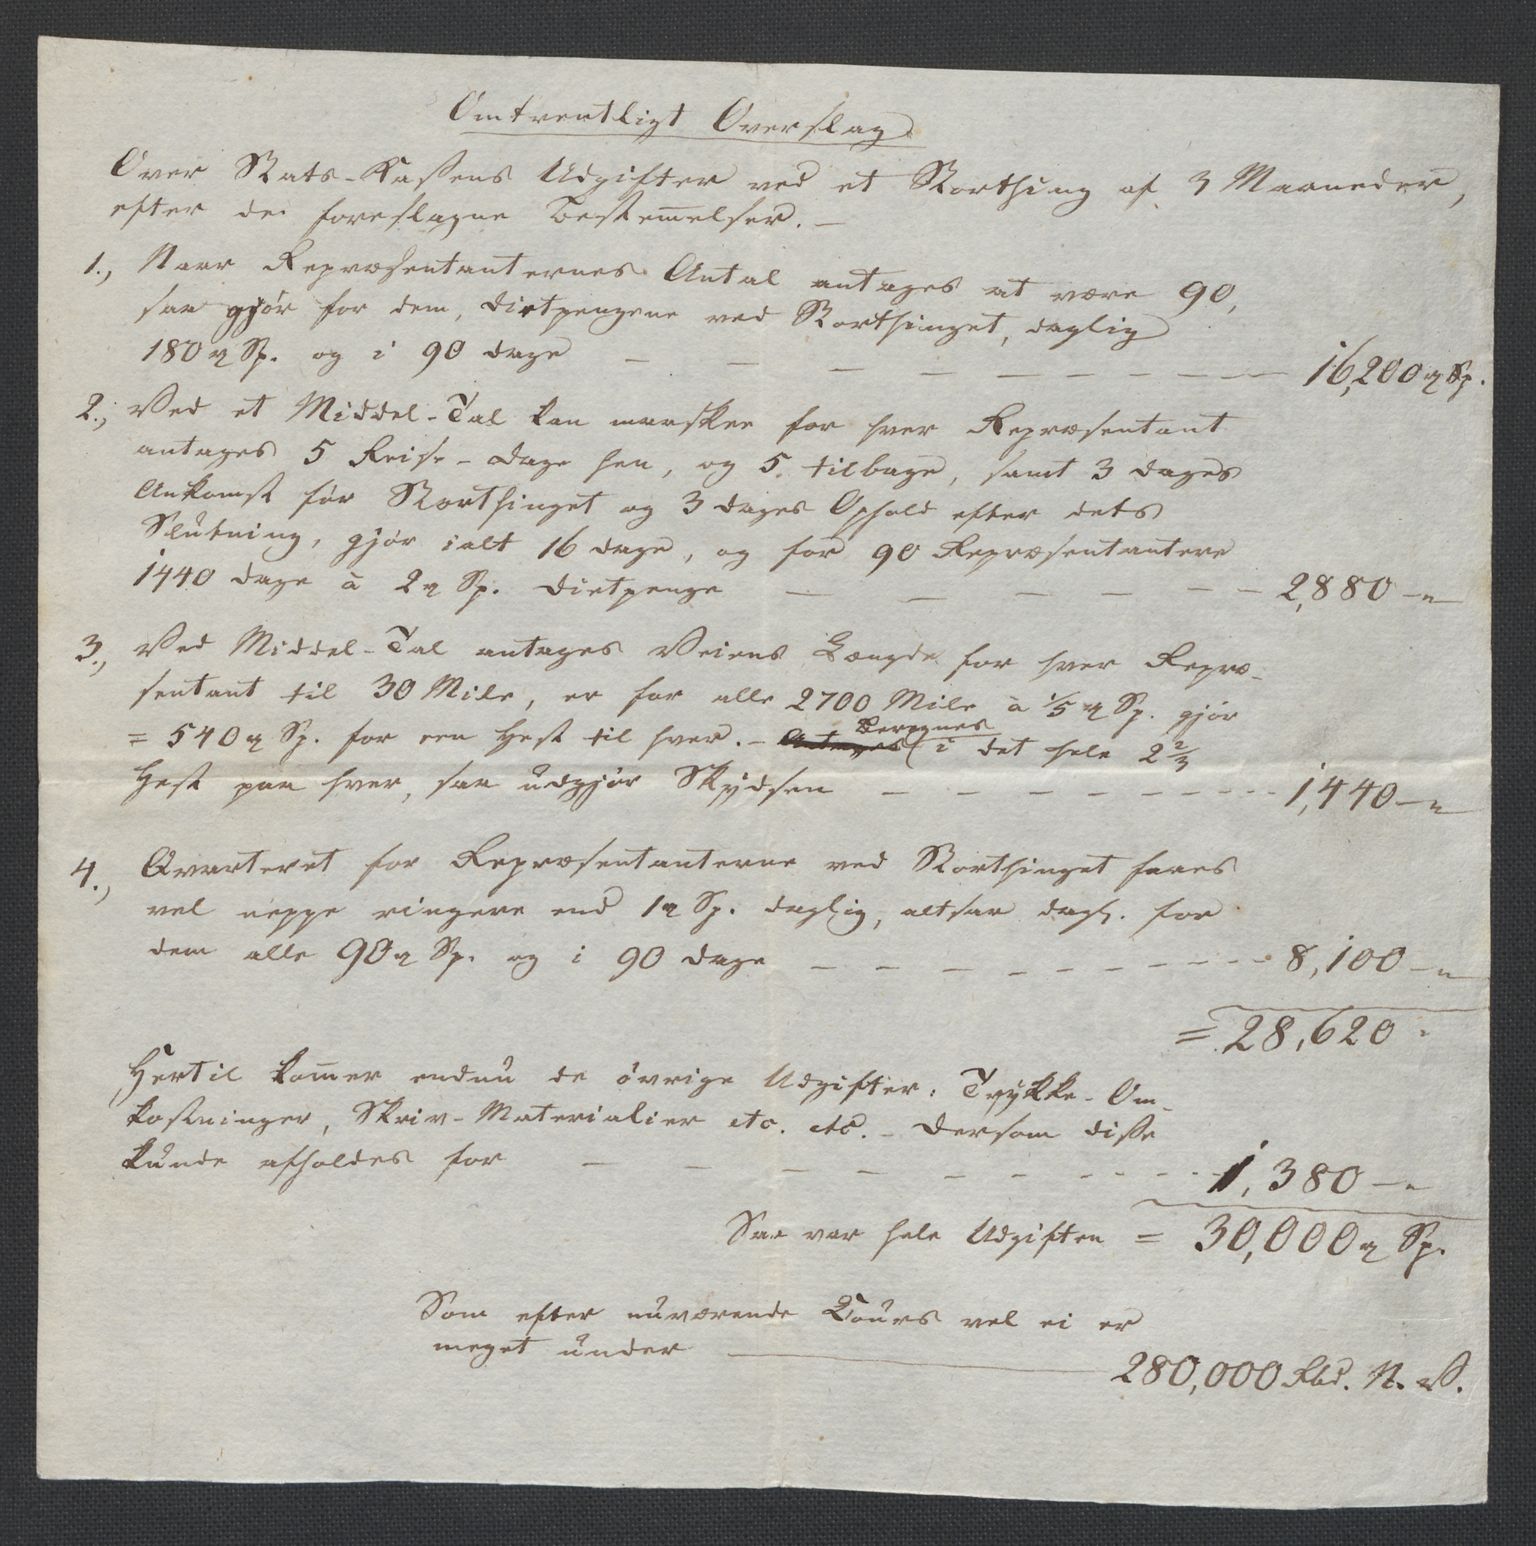 Omtrentligt Overslag
Over Stats-Kassens Udgifter ved et Storthing af 3 Maaneder,
efter de foreslagne Bestem̅elser. —
1., Naar Repræsentanternes Antal antages at være 90,
saa gjör for dem, Diætpengene ved Storthinget, daglig
180 Sp. og i 90 Dage — — — — — — — — 16,200 Sp.
2., Ved et Middel-Tal kan maaskee for hver Repræsentant
antages 5 Reise-Dage hen, og 5 tilbage, samt 3 Dages
Ankomst för Storthinget og 3 Dages Ophold efter dets
Slutning, gjör ialt 16 Dage, og for 90 Repræsentantere
1440 Dage à 2 Sp. Diætpenge — — — — — — 2,880 — "
3., Ved Middel-Tal antages Veiens Længde for hver Repræ-
sentant til 30 Mile, er for alle 2700 Mile à 1/5 Sp. gjör
= 540 Sp. for een Hest til hver. — Antages Beregnes i det hele 2 2/3
Hest paa hver, saa udgjör Skydsen — — — — — — 1,440 — "
4., Qvarteret for Repræsentanterne ved Storthinget faaes
vel neppe ringere end 1 Sp. daglig, altsaa dagl. for
dem alle 90 Sp. og i 90 Dage — — — — — — 8,100 — "
= 28,620 "
Hertil kom̅er endnu de övrige Udgifter: Trykke-Om-
kostninger, Skriv-Materialier etc. etc. — Dersom disse
kunde afholdes for — — — — — — 1,380 — "
Saa var hele Udgiften = 30,000 Sp.
Som efter nuværende Cours vel ei er
meget under — 280,000 Rbd. N. V.